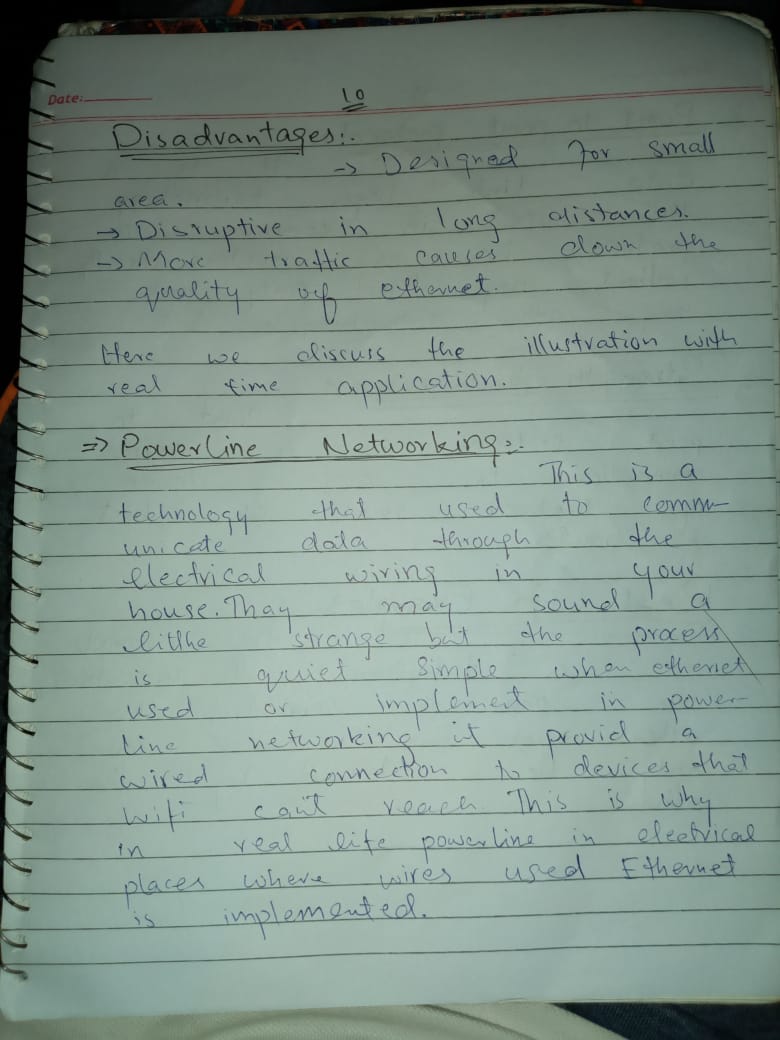 Date:
10
Disadvantages:-
→ Designed for small
area.
→ Disruptive in long distances.
→ More traffic causes down the
quality of ethernet.
Here we discuss the illustration with
real time application.
⇒ Powerline Networking:-
This is a
technology that used to comm-
unicate data through the
electrical wiring in your
house. Thay may sound a
litlhe strange but the process
is quiet simple when etheriet
used or implement in power-
line networking it provid a
wired connection to devices that
wifi can't reach This is why
in real life powerline in electrical
places where wires used Ethernet
is implemented.